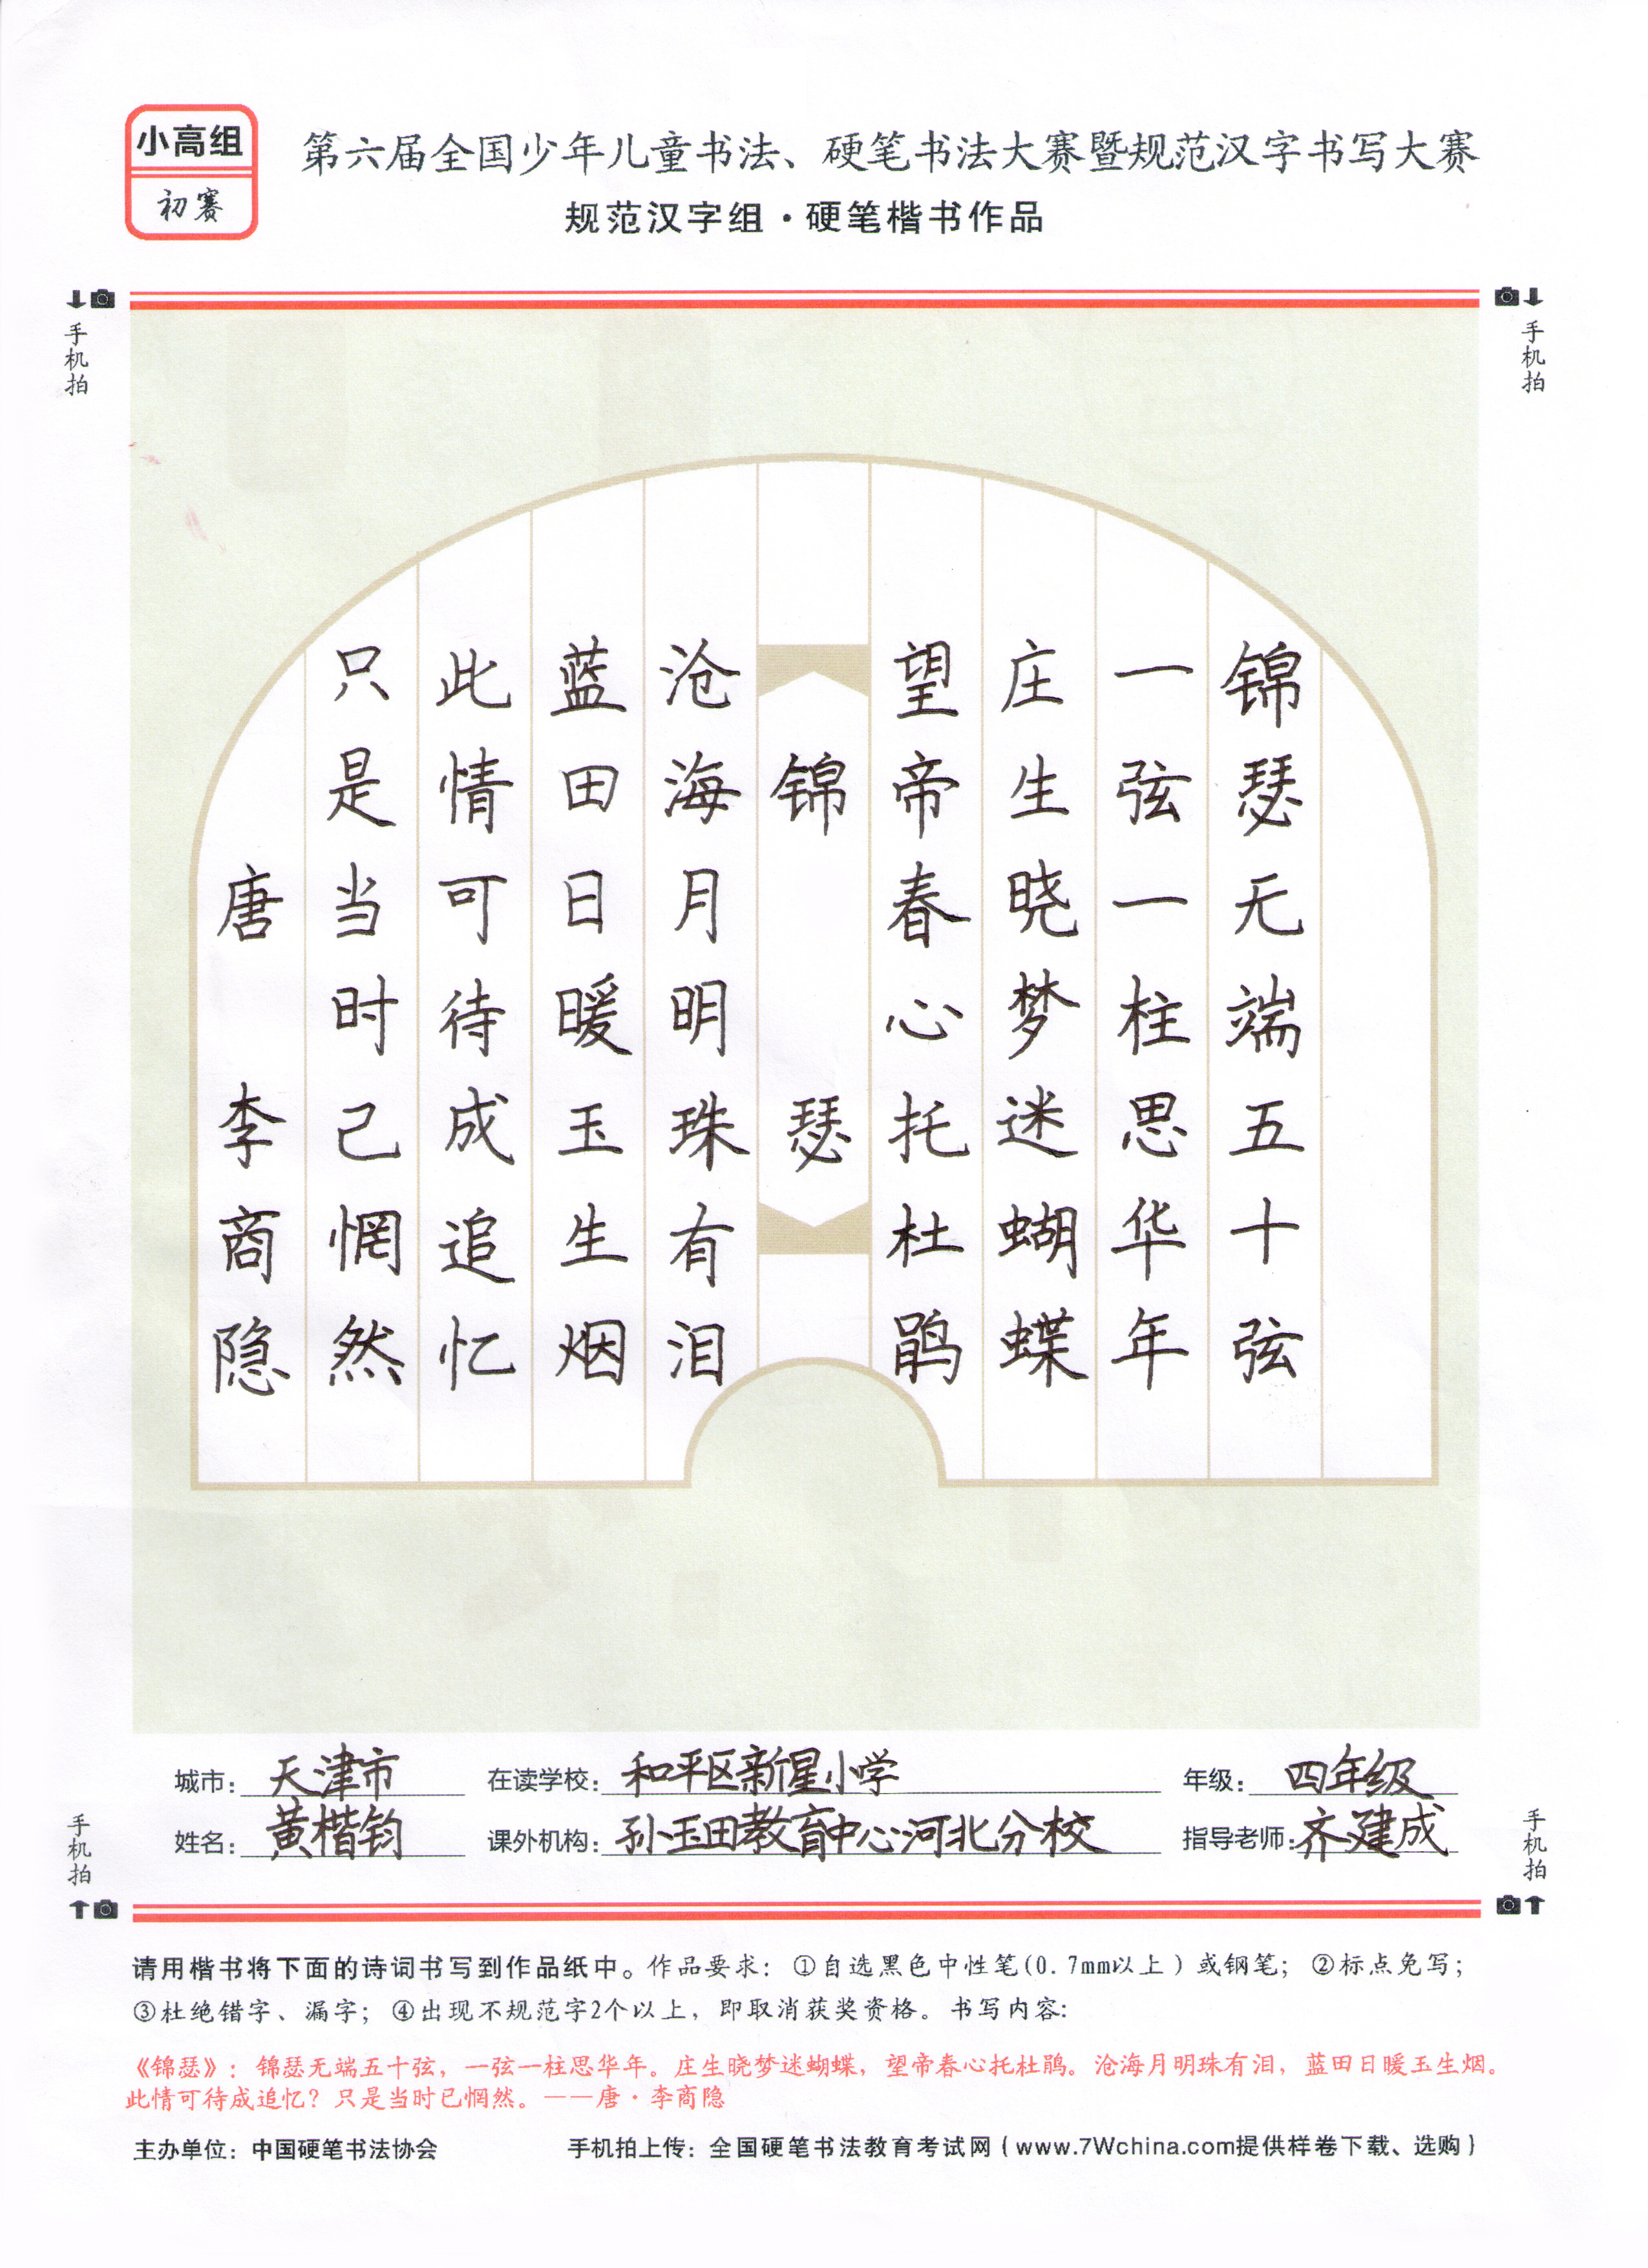 小高组
初赛
第六届全国少年儿童书法、硬笔书法大赛暨规范汉字书写大赛
规范汉字组·硬笔楷书作品
手机拍
手机拍
锦瑟无端五十弦
一弦一柱思华年
庄生晓梦迷蝴蝶
望帝春心托杜鹃
锦瑟
沧海月明珠有泪
蓝田日暖玉生烟
此情可待成追忆
只是当时己惘然
唐 李商隐
城市: 天津市 在读学校: 和平区新星小学 年级: 四年级
姓名: 黄楷钧 课外机构: 孙玉田教育中心河北分校 指导老师: 齐建成
手机拍
手机拍
请用楷书将下面的诗词书写到作品纸中。作品要求: ①自选黑色中性笔(0.7mm以上)或钢笔; ②标点免写;
③杜绝错字、漏字; ④出现不规范字2个以上, 即取消获奖资格。书写内容:
《锦瑟》: 锦瑟无端五十弦, 一弦一柱思华年。庄生晓梦迷蝴蝶, 望帝春心托杜鹃。沧海月明珠有泪, 蓝田日暖玉生烟。
此情可待成追忆? 只是当时已惘然。——唐·李商隐
主办单位: 中国硬笔书法协会 手机拍上传: 全国硬笔书法教育考试网(www.7Wchina.com提供样卷下载、选购)